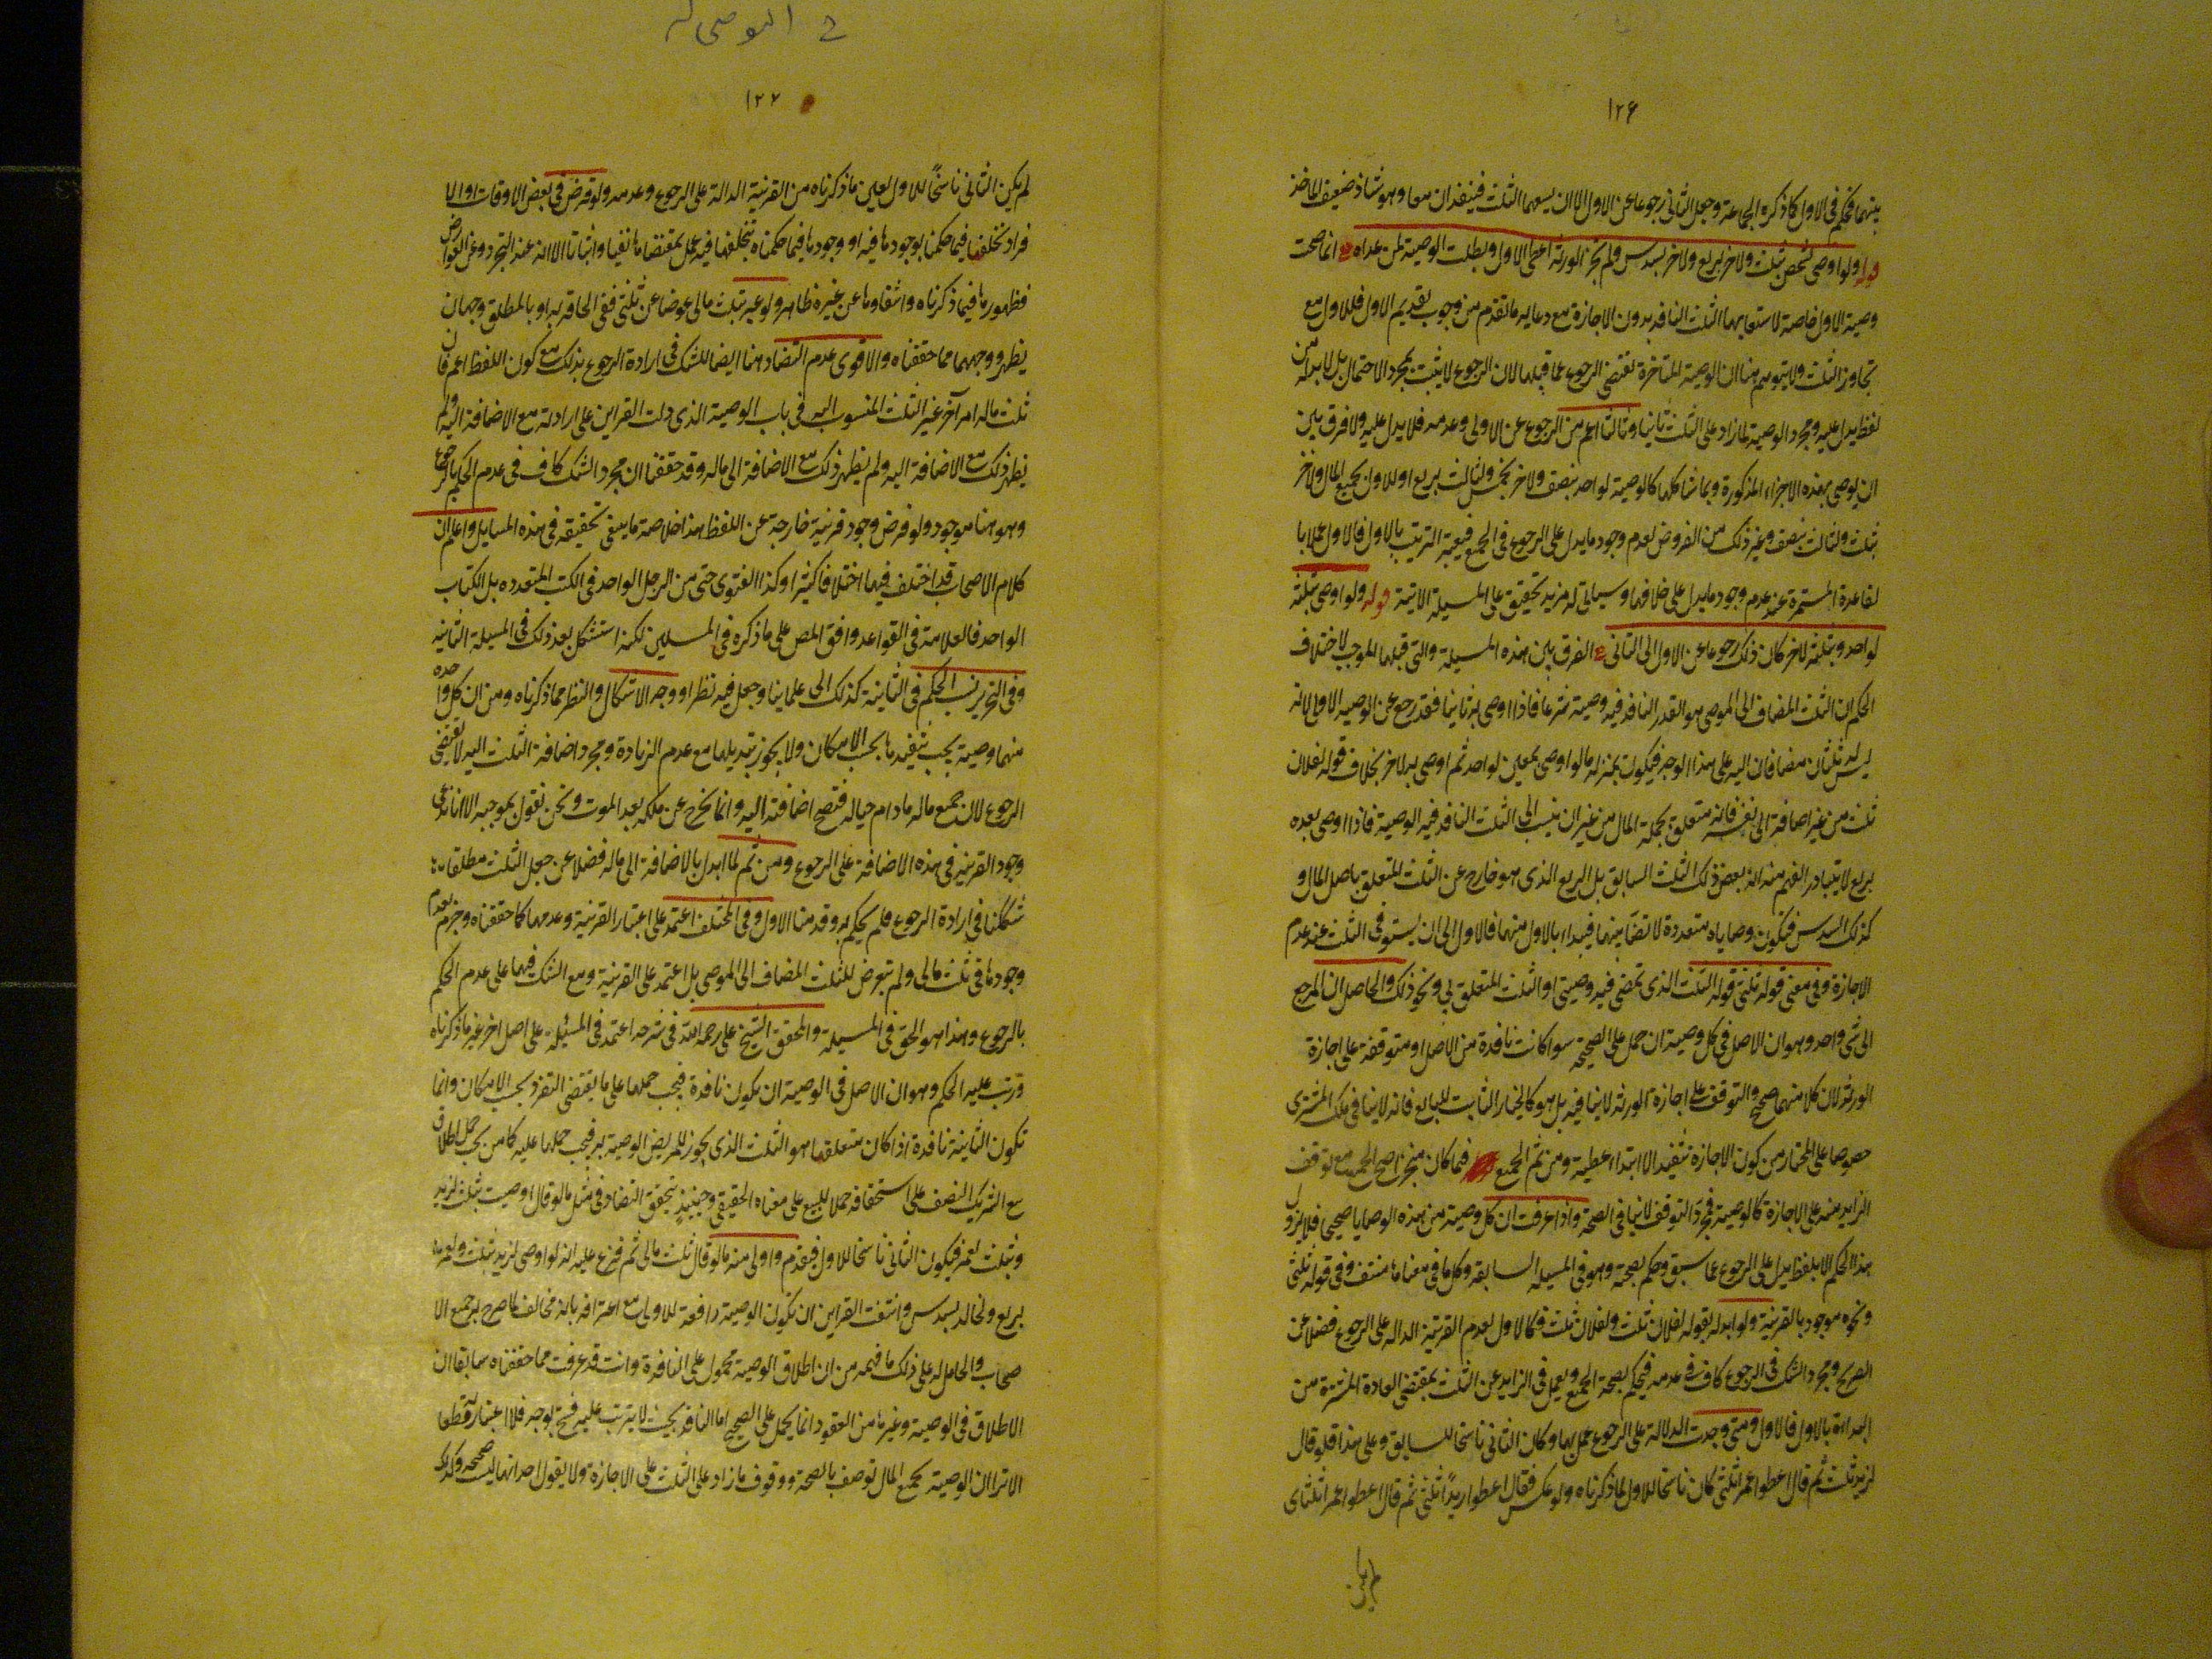 ١٢۶
بينهما فحكم في الاول كما ذكره الجماعة وجعل الثاني رجوعا عن الاول الا ان يسعهما الثلث فينفذان معا وهو شاذ ضعيف الماخذ
قوله ولو اوصى لشخص بثلث ولاخر بربع ولاخر بسدس ولم تجز الورثة اعطى الاول وبطلت الوصية لمن عداه انما صحت
وصية الاول خاصة لاستيعابها الثلث النافذ بدون الاجازة مع دعاية ما تقدم من وجوب تقديم الاول فالاول مع
تجاوز الثلث ولا يتوهم هنا ان الوصية المتاخرة تقتضي الرجوع عما قبلها لان الرجوع لا يثبت بمجرد الاحتمال بل لا بد له من
لفظ يدل عليه ومجرد الوصية بما زاد على الثلث ثانيا وثالثا اعم من الرجوع عن الاولى وعدمه فلا يدل عليه ولا فرق بين
ان يوصي بهذه الاجزاء المذكورة وبما شاكلها كالوصية لواحد بنصف ولاخر بخمس ولثالث بربع او للاول بجميع المال ولاخر
بثلث ولثالث بنصف وغير ذلك من الفروض لعدم وجود ما يدل على الرجوع في الجميع فيعتبر الترتيب بالاول فالاول عملا با
لقاعدة المستمرة عند عدم وجود ما يدل على خلافها وسياتي له مزيد تحقيق على المسيلة الاتية قوله ولو اوصى بثلثه
لواحد وبثلثه لاخر كان ذلك رجوعا عن الاول الى الثاني الفرق بين هذه المسيلة والتي قبلها الموجب لاختلاف
الحكم ان الثلث المضاف الى الموصي هو القدر النافذ فيه وصيته شرعا فاذا اوصى به ثانيا فقد رجع عن الوصية الاولى لانه
ليس له ثلثان مضافان اليه على هذا الوجه فيكون بمنزلة ما لو اوصى بمعين لواحد ثم اوصى به لاخر بخلاف قوله لفلان
ثلث من غير اضافة الى نفسه فانه متعلق بجملة المال من غير ان ينسب الى الثلث النافذ فيه الوصية فاذا اوصى بعده
بربع لا يتبادر الفهم منه انه بعض ذلك الثلث السابق بل الربع الذي هو خارج عن الثلث المتعلق باصل المال و
كذلك السدس فيكون وصاياه متعددة لا تضاد بينهما فيبدأ بالاول منهما فالاول الى ان يستوفى الثلث عند عدم
الاجازة وفي معنى قوله ثلثي قوله الثلث الذي تمضي فيه وصيتي او الثلث المتعلق بي ونحو ذلك والحاصل ان المرجع
الى شي واحد وهو ان الاصل في كل وصية ان تحمل على الصحيحة سوا كانت نافذة من الاصل او متوقفة على اجازة
الورثة لان كلا منهما صحيح والتوقف على اجازة الورثة لا ينافيه بل هو كالخيار الثابت للبايع فانه لا ينافي ملك المشتري
خصوصا على المختار من كون الاجازة تنفيذا لا ابتداء عطية ومن ثم الجميع فيما كان منجزا صح الجميع مع توقف
الزايد منه على الاجازة كالوصية فمجرد التوقف لا ينافي الصحة واذا عرفت ان كل وصية من هذه الوصايا صحيح فلا يزول
هذا الحكم الا بلفظ يدل على الرجوع عما سبق وحكم بصحته وهو في المسيلة السابقة وكل ما في معناها منتف وفي قوله ثلثي
ونحوه موجود بالقرينة ولو ابدله بقوله لفلان ثلث ولفلان ثلث فكالاول لعدم القرينة الدالة على الرجوع فضلا عن
الصريح ومجرد الشك في الرجوع كاف في عدمه فيحكم بصحة الجميع ويعمل في الزايد عن الثلث بمقتضى العادة المستمرة من
البداءة بالاول فالاول ومتى وجدت الدلالة على الرجوع عمل بها وكان الثاني ناسخا للسابق وعلى هذا فلو قال
لزيد ثلث ثم قال اعطوا عمرا ثلثي كان ناسخا للاول لما ذكرناه ولو عكس فقال اعطوا زيدا ثلثي ثم قال اعطوا عمرا ثلثا
في الموصى له
١٢٧
لم يكن الثاني ناسخا للاول لعين ما ذكرناه من القرينة الدالة على الرجوع وعدمه ولو فرض في بعض الاوقات او الا
فراد تخلفها فيما حكمنا بوجودها فيه او وجودها فيما حكمناه بتخلفها فيه عمل بمقتضاها نفيا واثباتا الا انه عند التجرد عن العوارض
فظهورها فيما ذكرناه وانتفاؤها عن غيره ظاهر ولو عبر بثلث مالي عوضا عن ثلثي ففي الحاقه به او بالمطلق وجهان
يظهر وجههما مما حققناه والاقوى عدم التضاد هنا ايضا للشك في ارادة الرجوع بذلك مع كون اللفظ اعم فان
ثلث ماله امر آخر غير الثلث المنسوب اليه في باب الوصية الذي دلت القراين على ارادته مع الاضافة اليه ولم
يظهر ذلك مع الاضافة اليه ولم يظهر ذلك مع الاضافة الى ماله وقد حققنا ان مجرد الشك كاف في عدم الحكم بالرجوع
وهو هنا موجود ولو فرض وجود قرينة خارجة عن اللفظ هذا خلاصة ما ينبغي تحقيقه في هذه المسايل واعلم ان
كلام الاصحاب قد اختلف فيها اختلافا كثيرا وكذا الفتوى حتى من الرجل الواحد في الكتب المتعددة بل الكتاب
الواحد فالعلامة في القواعد وافق المص على ما ذكره في المسيلتين لكنه استشكل بعد ذلك في المسيلة الثانية
وفي التحرير نسب الحكم في الثانية كذلك الى علماينا وجعل فيه نظرا ووجه الاشكال والنظر مما ذكرناه ومن ان كل واحدة
منهما وصية يجب تنفيذها بحسب الامكان ولا يجوز تبديلها مع عدم الزيادة ومجرد اضافة الثلث اليه لا تقتضي
الرجوع لان جميع ماله ما دام حيا له فتصح اضافته اليه وانما يخرج عن ملكه بعد الموت ونحن نقول بموجبه الا انا ندعي
وجود القرينة في هذه الاضافة على الرجوع ومن ثم لما ابدل بالاضافة الى ماله فضلا عن جعل الثلث مطلقا
شككنا في ارادة الرجوع فلم يحكم به وقدمنا الاول وفي المختلف اعتمد على اعتبار القرينة وعدمها كما حققناه وجزم بعدم
وجودها في ثلث مالي ولم يتعرض للثلث المضاف الى الموصي بل اعتمد على القرينة ومع الشك فيها على عدم الحكم
بالرجوع وهذا هو الحق في المسيلة والمحقق الشيخ علي رحمه الله في شرحه اعتمد في المسئلة على اصل اخر غير ما ذكرناه
ورتب عليه الحكم وهو ان الاصل في الوصية ان تكون نافذة فيجب حملها على ما يقتضي النفوذ بحسب الامكان وانما
تكون الثانية نافذة اذا كان متعلقها هو الثلث الذي يجوز للمريض الوصية به فيجب حملها عليه كما من يجب حمل اطلاق
بيع الشريك النصف على استحقاقه حملا للبيع على معناه الحقيقي وحينئذ فيتحقق التضاد في مثل ما لو قال اوصيت بثلث لزيد
وبثلث لعمرو فيكون الثاني ناسخا للاول فيقدم واولى منه ما لو قال ثلث مالي ثم فرع عليه انه لو اوصى لزيد بثلث ولعمرو
بربع ولخالد بسدس وانتفت القراين ان تكون الوصية رافعة للاولى مع اعترافه بانه مخالف لما صرح به جميع الا
صحاب والحامل له على ذلك ما فهمه من ان اطلاق الوصية محمول على النافذة وانت قد عرفت مما حققناه سابقا ان
الاطلاق في الوصية وغيرها من العقود انما يحمل على الصحيح اما النافذ بحيث لا يترتب عليه فسخ بوجه فلا اعتبار له قطعا
الا ترى ان الوصية بجميع المال توصف بالصحة ووقوف ما زاد على الثلث على الاجازة ولا يقول احد انها ليست صحيحة وكذلك